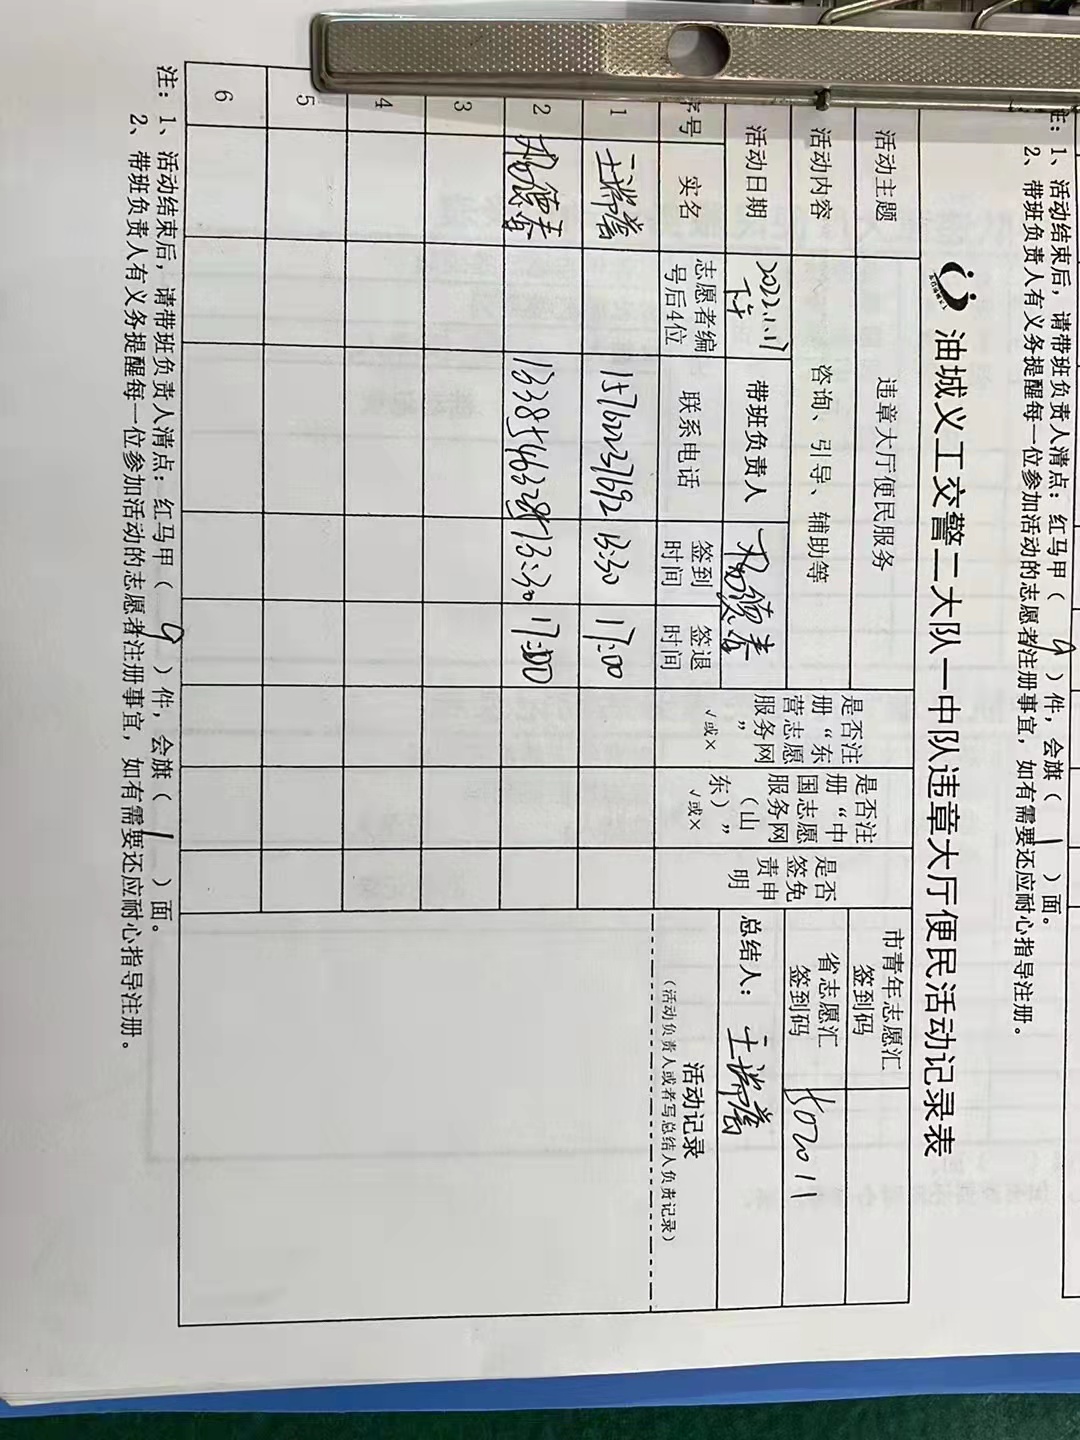 注：1、活动结束后，请带班负责人清点：红马甲（ 9 ）件，会旗（ 1 ）面。
2、带班负责人有义务提醒每一位参加活动的志愿者注册事宜，如有需要还应耐心指导注册。
油城义工交警二大队一中队违章大厅便民活动记录表
活动主题 违章大厅便民服务 市青年志愿汇签到码
活动内容 咨询、引导、辅助等 省志愿汇签到码 502011
活动日期 2022.1.17 下午 带班负责人 杨德春 是否注册“东营志愿服务网” √或× 是否注册“中国志愿服务网（山东）” √或× 是否签免责申明 总结人：王瑞誉
序号 实名 志愿者编号后4位 联系电话 签到时间 签退时间 活动记录
（活动负责人或者写总结人负责记录）
1 王瑞誉 15760237692 13:30 17:00
2 杨德春 13385463285 13:30 17:00
3
4
5
6
注：1、活动结束后，请带班负责人清点：红马甲（ 9 ）件，会旗（ 1 ）面。
2、带班负责人有义务提醒每一位参加活动的志愿者注册事宜，如有需要还应耐心指导注册。